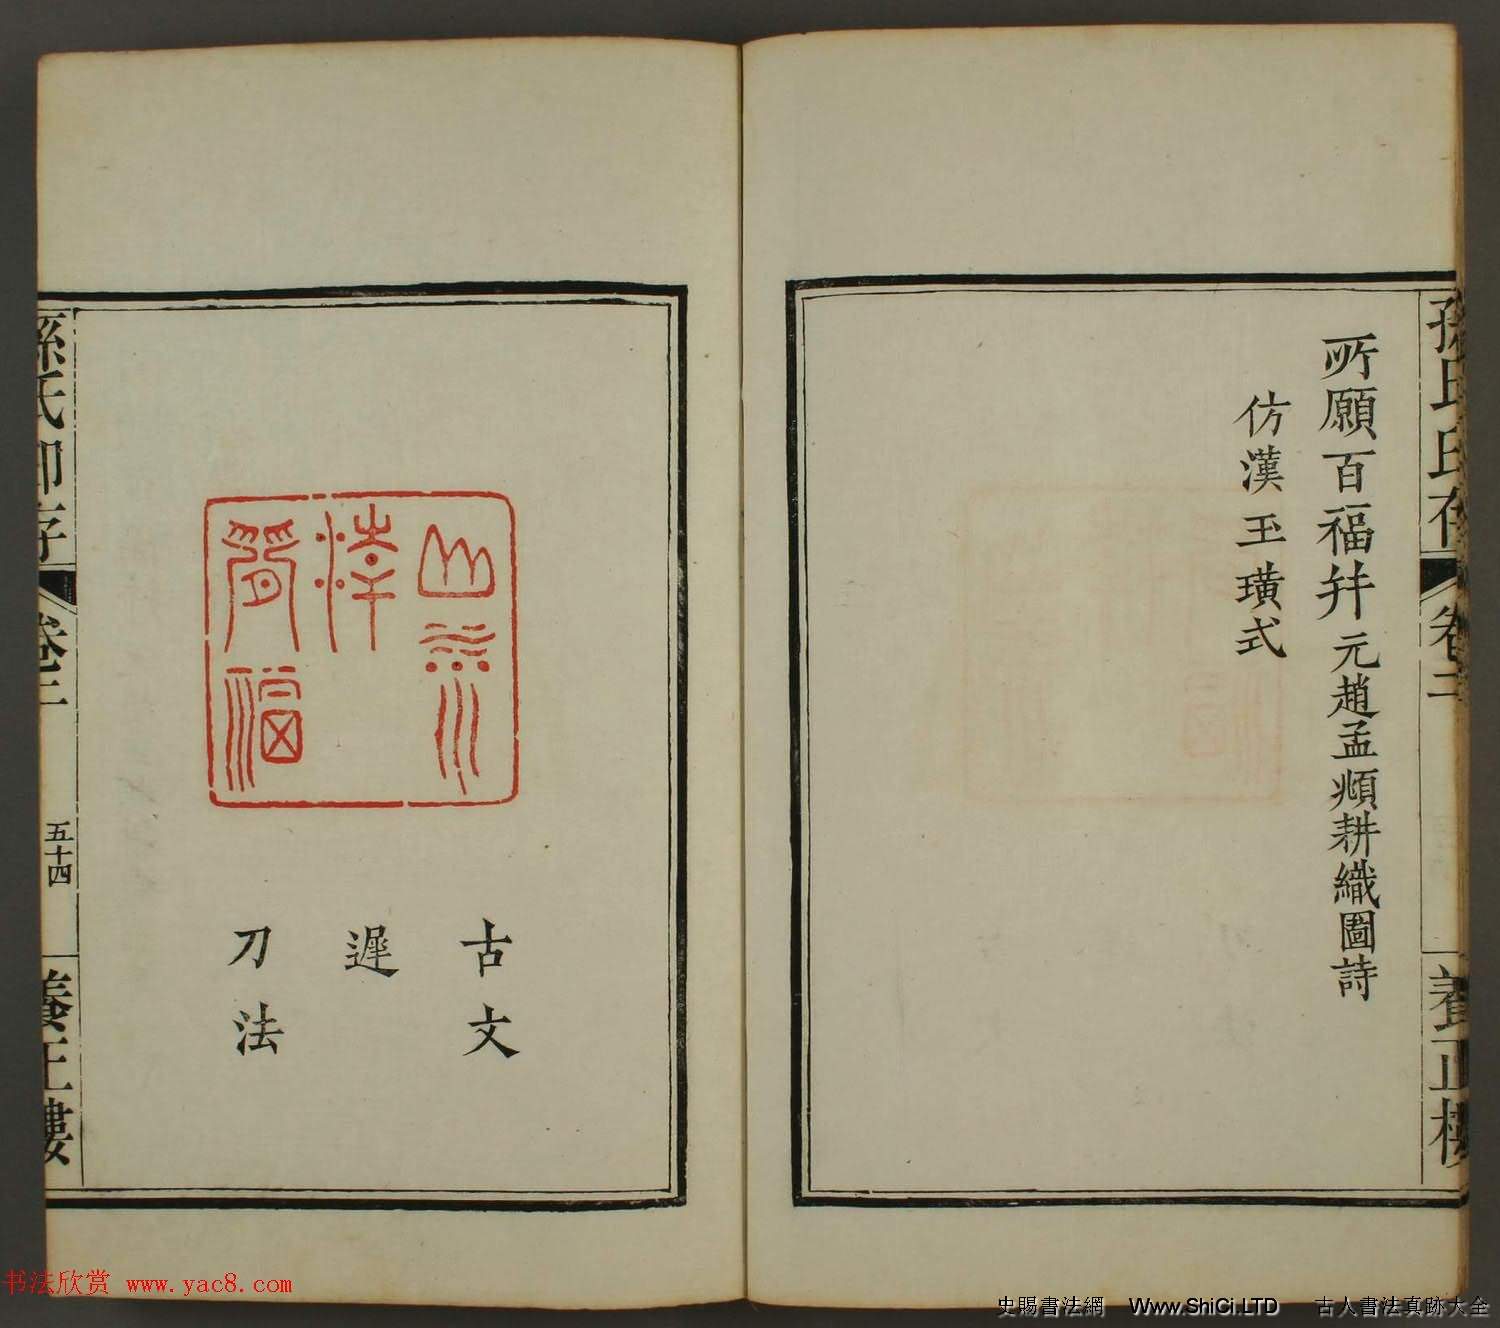 所願百福并元趙孟頫耕織圖詩
仿漢玉璜式
孫氏印存
卷二
養正樓
古文
遲
刀法
孫氏印存
卷二
五十四
養正樓
书法欣赏 www.yac8.com
史賜書法網 Www.ShiCi.LTD 古人書法真跡大全